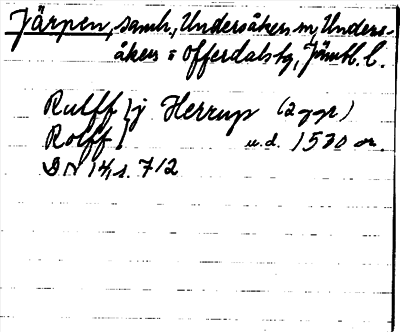 Järpen, samh., Undersåkers sn, Unders-
åkers o Offerdals tg, Jämtl. l.
Rulff } j Herrup (2 ggr)
Rolff } u.d. 1530 or.
DN 14, s. 712